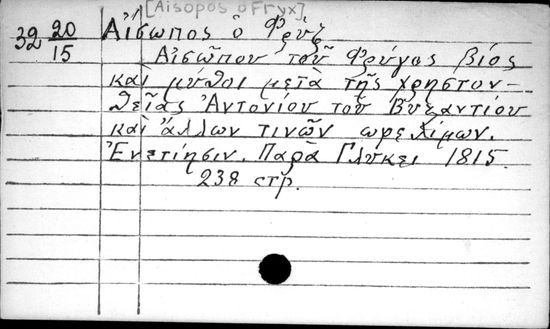 [Aisopos o Fryx]
32 20/15 Αἴσωπος ὁ Φρύξ
Αἰσώπου τοῦ Φρύγος βίος
καὶ μύθοι μετὰ τῆς χρηστον-
θείας Ἀντονίου τοῦ Βυζαντίου
καὶ ἄλλων τινῶν ωφελίμων.
Ἐνετίησιν. Παρὰ Γλύκει 1815.
238 стр.